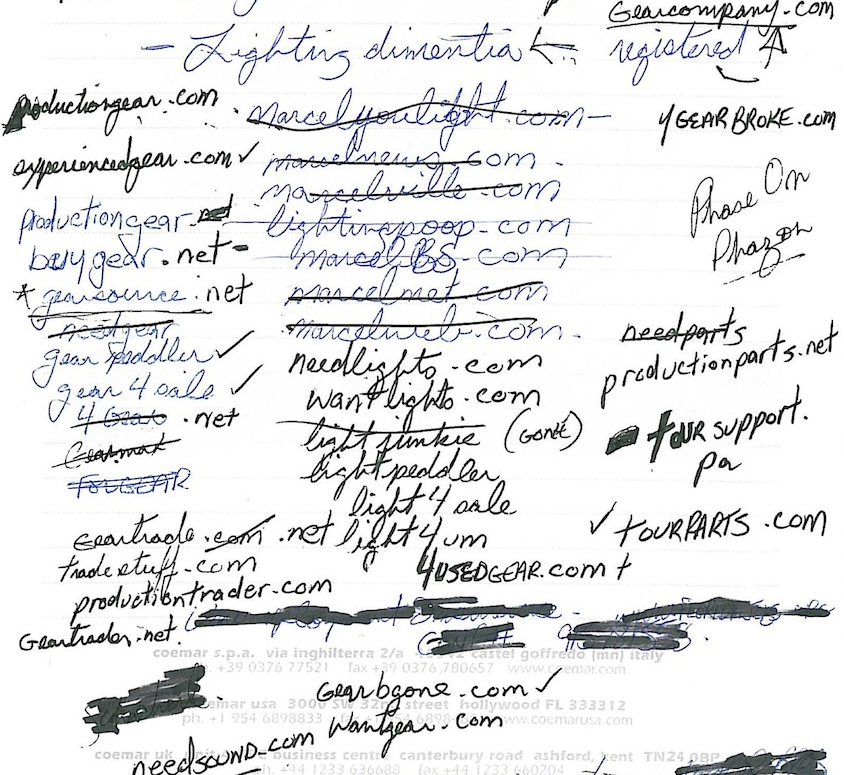 Gearcompany.com
- Lighting dimentia ← registered
productiongear.com
marcelyoulight.com -
4GEARBROKE.com
experiencedgear.com ✓
marcelnews.com -
marcelville.com
Phase On
Phazon
productiongear.net
lightingpoop.com
buygear.net -
marcelBS.com
* gearsource.net
marcelnet.com
needgear
marcelweb.com -
needparts
gear peddler ✓
needlights.com
productionparts.net
gear 4 sale ✓
wantlights.com
4 Gear .net
light junkie (GONE)
TOUR SUPPORT.
Gearmart
light peddler
pa
FORGEAR
light 4 sale
geartrade.com .net
light 4 um
✓ TOURPARTS.com
tradestuff.com
4USEDGEAR.com +
productiontrader.com
Geartrader.net.
coemar s.p.a. via inghilterra 2/a castel goffredo (mn) italy
ph. +39 0376 77521 fax +39 0376 780657 www.coemar.com
Gearbgone.com ✓
coemar usa 3000 SW 32nd street hollywood FL 333312
ph. +1 954 6898833 www.coemarusa.com
Wantgear.com
coemar uk business centre canterbury road ashford, kent TN24 0BP
needSOUND.com
ph. +44 1233 636688 fax +44 1233 660204